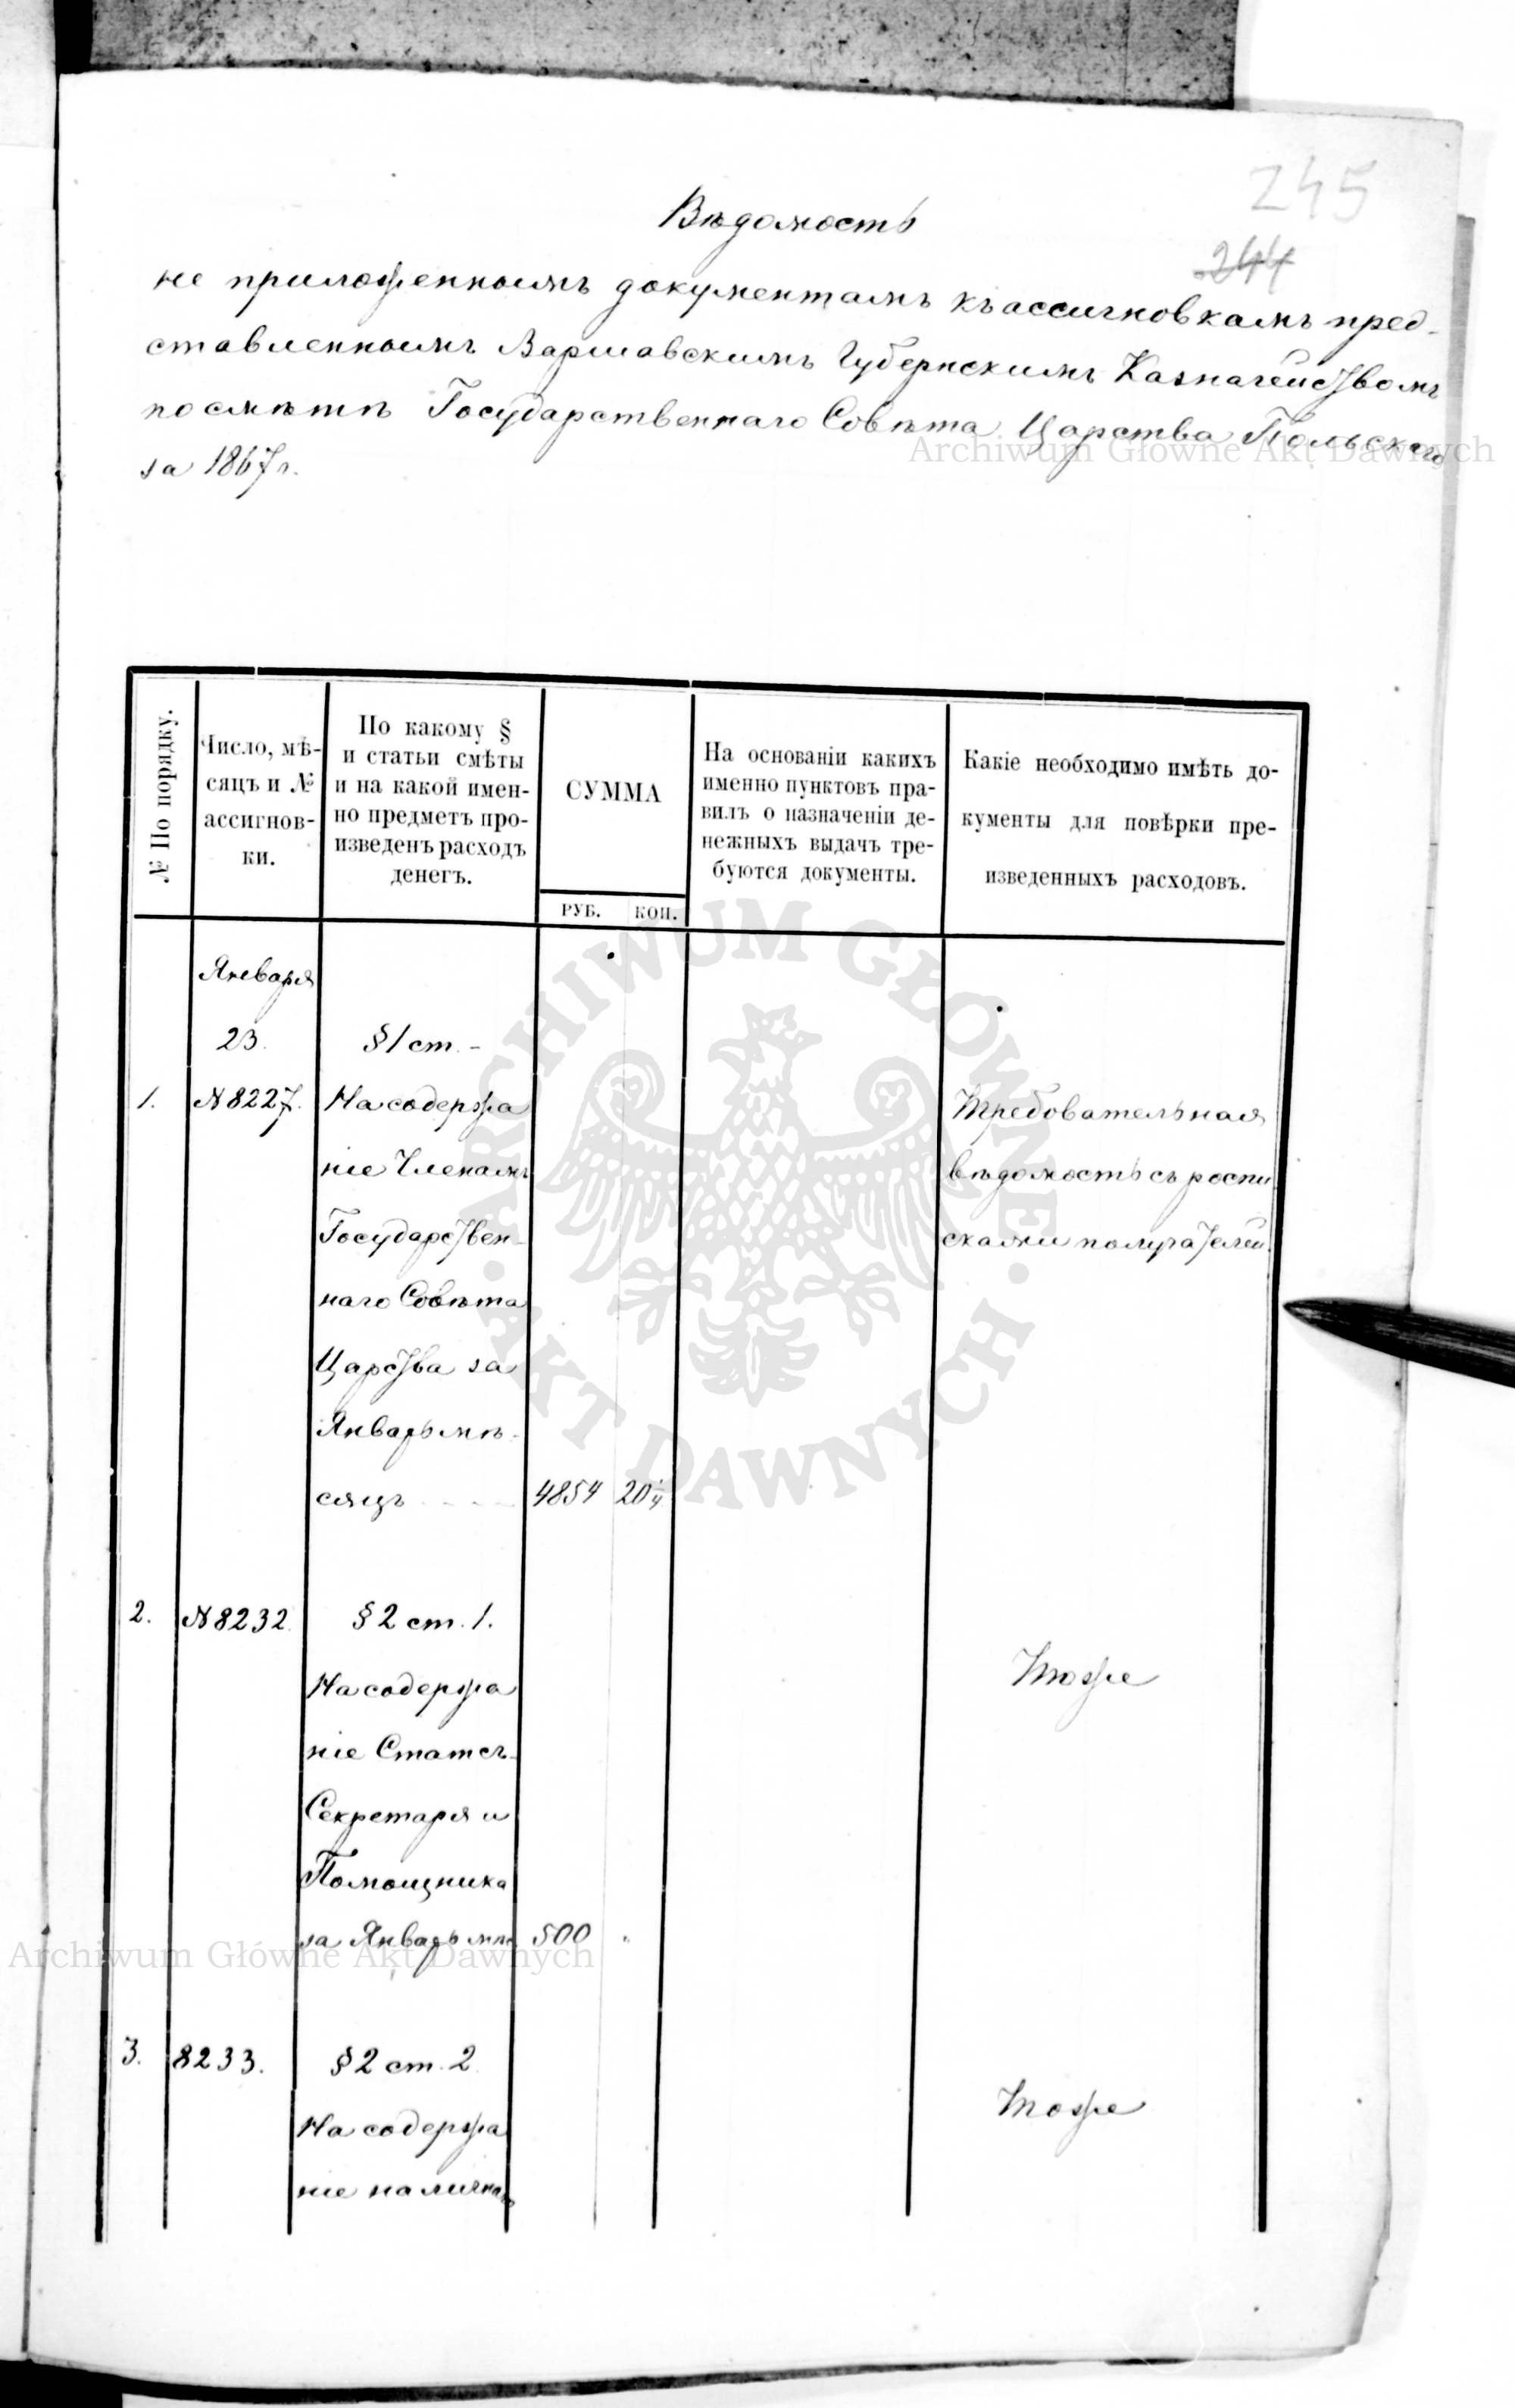 245
Вѣдомость
244
не приложеннымъ документамъ къ ассигновкамъ пред-
ставленнымъ Варшавскимъ Губернскимъ Казначействомъ
по смѣтѣ Государственнаго Совѣта Царства Польскаго
за 1867 г.
Archiwum Główne Akt Dawnych
№ По порядку.
Число, мѣ-
сяцъ и №
ассигнов-
ки.
По какому §
и статьи смѣты
и на какой имен-
но предметъ про-
изведенъ расходъ
денегъ.
СУММА
РУБ. КОП.
На основаніи какихъ
именно пунктовъ пра-
вилъ о назначеніи де-
нежныхъ выдачъ тре-
буются документы.
Какіе необходимо имѣть до-
кументы для повѣрки пре-
изведенныхъ расходовъ.
ARCHIWUM GŁÓWNE AKT DAWNYCH
Января
23. §1 ст. -
1. №8227. На содержа
ніе Членамъ
Государствен-
наго Совѣта
Царства за
Январь мѣ-
сяцъ 4854 20 1/4
Требовательная
вѣдомость съ распи
сками получателей.
2. №8232. §2 ст. 1.
На содержа
ніе Статсъ-
Секретаря и
Помощника
за Январь мѣс 500 "
Тоже
Archiwum Główne Akt Dawnych
3. 8233. §2 ст. 2.
На содержа
ніе
Тоже